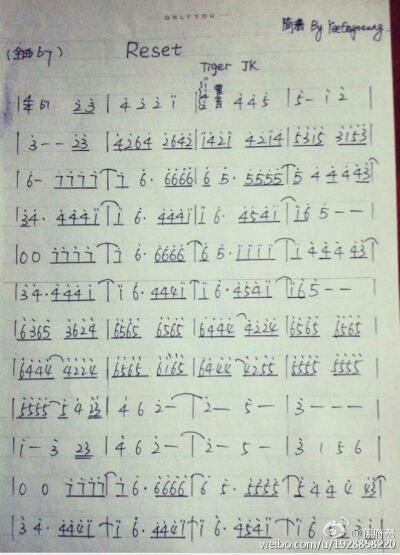 ONLY YOU
简谱 By
(全曲 b7)
Reset
Tiger JK
3 - - 2 3 | 4 2 6 4 2 6 4 2 | 1 4 2 1 4 2 1 4 | 5 3 1 5 3 1 5 3
6 - 7 7 7 7 | 7 6 · 6 6 6 6 | 6 5 · 5 5 5 5 | 5 4 4 4 4 3
3 4 · 4 4 4 1 | 1 6 · 4 4 4 1 | 1 6 · 4 5 4 1 | 1 6 5 - -
0 0 7 7 7 7 | 7 6 · 6 6 6 6 | 6 5 · 1 1 1 1 | 1 4 4 4 4 3
3 4 · 4 4 4 1 | 1 6 · 4 4 4 1 | 1 6 · 4 5 4 1 | 1 6 5 - -
6 3 6 5 3 6 2 4 | 6 5 6 5 6 5 6 5 | 6 4 4 4 4 2 2 4 | 6 5 6 5 6 5 6 5
6 4 4 4 4 2 2 4 | 6 5 6 5 6 1 6 5 | 6 4 4 4 4 2 5 5 | 5 5 5 5 5 5 5 5
5 5 5 5 5 4 2 3 | 4 6 2 - | 2 - 5 - | 3 - - -
1 - 3 2 3 | 4 6 2 - | 2 - 5 - | 3 1 5 6
0 0 7 7 7 7 | 7 6 · 6 6 6 6 | 6 5 · 5 5 5 5 | 5 4 4 4 4 3
3 4 · 4 4 4 1 | 1 6 · 4 4 4 1 | 1 6 · 4 5 4 1
weibo.com/u/1928898220